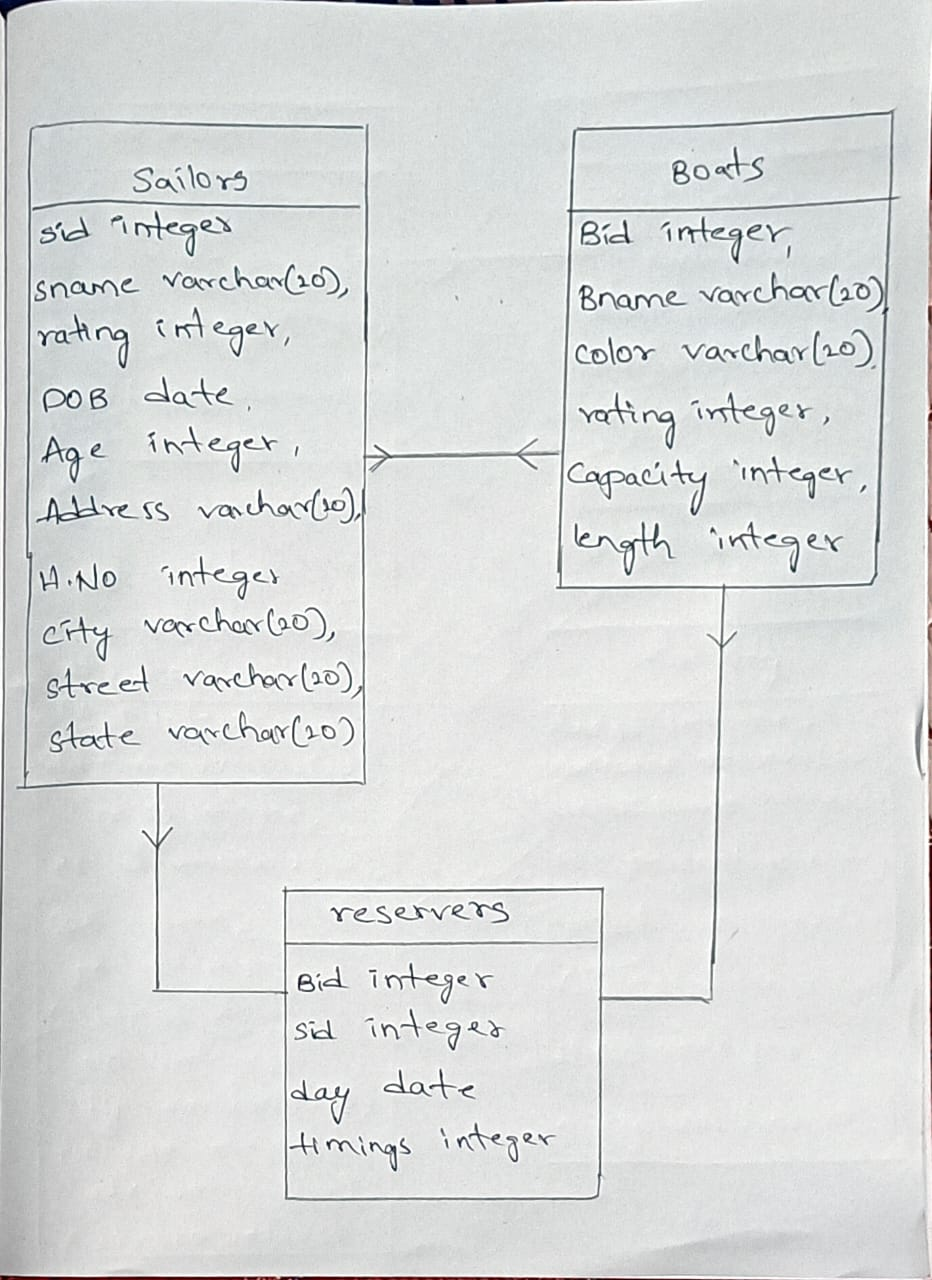 Sailors
sid integer
sname varchar(20),
rating integer,
DOB date,
Age integer,
Address varchar(20),
H.NO integer
city varchar(20),
street varchar(20),
state varchar(20)
Boats
Bid integer,
Bname varchar(20)
color varchar(20),
rating integer,
Capacity integer,
length integer
reservers
Bid integer
sid integer
day date
timings integer